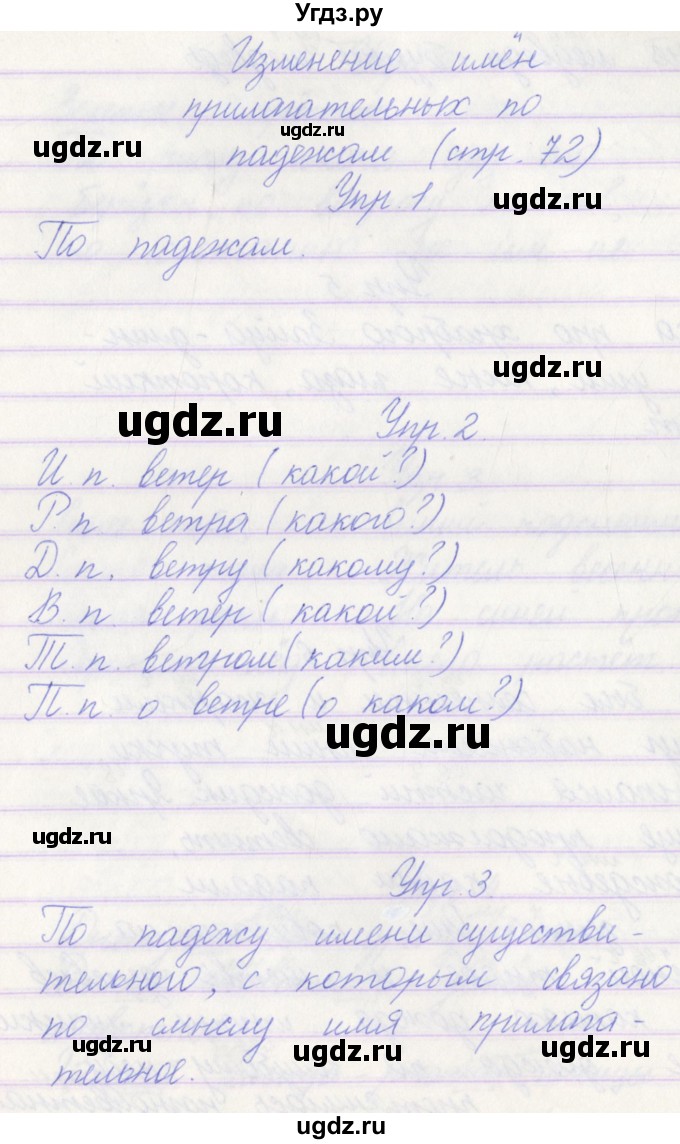 Угдз.ру
Изменение имён
прилагательных по
ugdz.ru
ugdz.ru
падежам (стр. 72)
Упр. 1
ugdz.ru
По падежам.
ugdz.ru
ugdz.ru
Упр. 2.
И. п. ветер (какой?)
Р. п. ветра (какого?)
Д. п. ветру (какому?)
В. п. ветер (какой?)
Т. п. ветром (каким?)
П. п. о ветре (о каком?)
ugdz.ru
ugdz.ru
Упр. 3.
По падежу имени существи-
тельного, с которым связано
по смыслу имя прилага-
ugdz.ru
ugdz.ru
ugdz.ru
тельное.
ugdz.ru